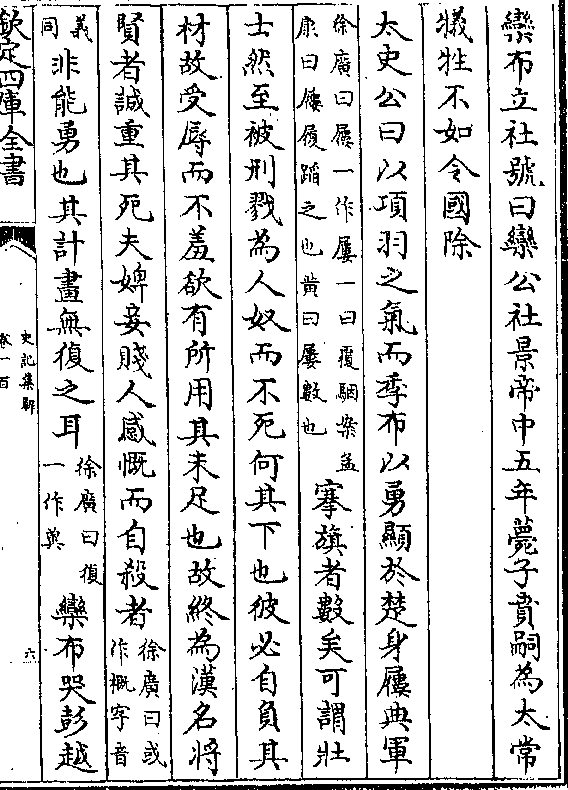 欒布立社號曰欒公社景帝中五年薨子賁嗣為太常
犧牲不如令國除
太史公曰以項羽之氣而季布以勇顯於楚身屨典軍
徐廣曰屨一作屢一曰覆駰案孟
康曰屨履蹈之也黄曰屢數也
搴旗者數矣可謂壯
士然至被刑戮為人奴而不死何其下也彼必自負其
材故受辱而不羞欲有所用其未足也故終為漢名將
賢者誠重其死夫婢妾賤人感慨而自殺者
徐廣曰或
作概字音
義
同
非能勇也其計畫無復之耳
徐廣曰復
一作兾
欒布哭彭越
欽定四庫全書
史記集解
卷一百
六